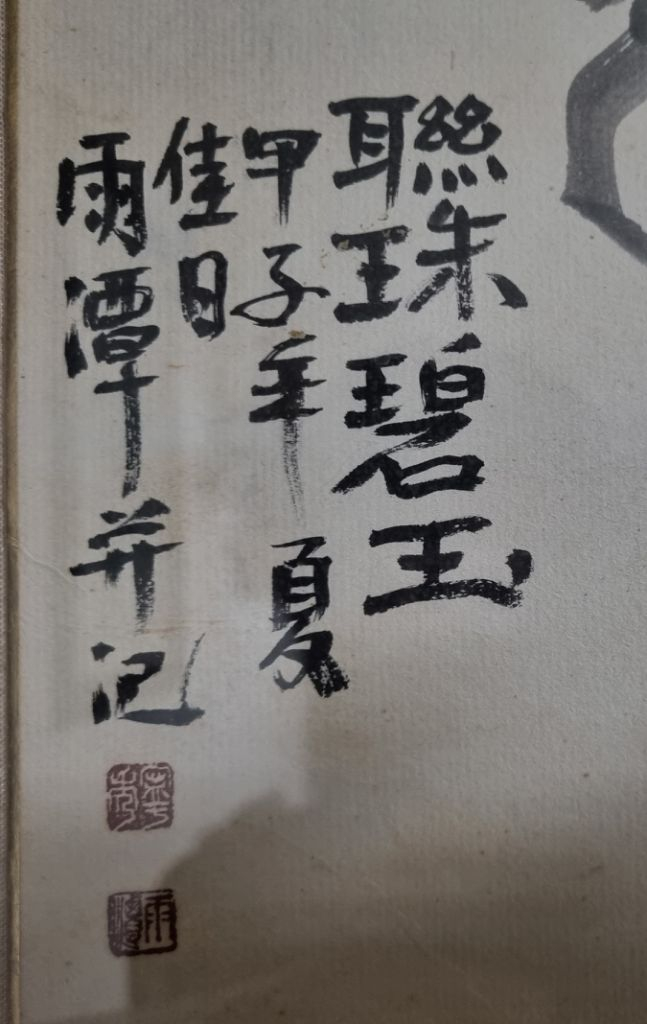 聯珠碧玉
甲子年夏
佳日
雨潭并记